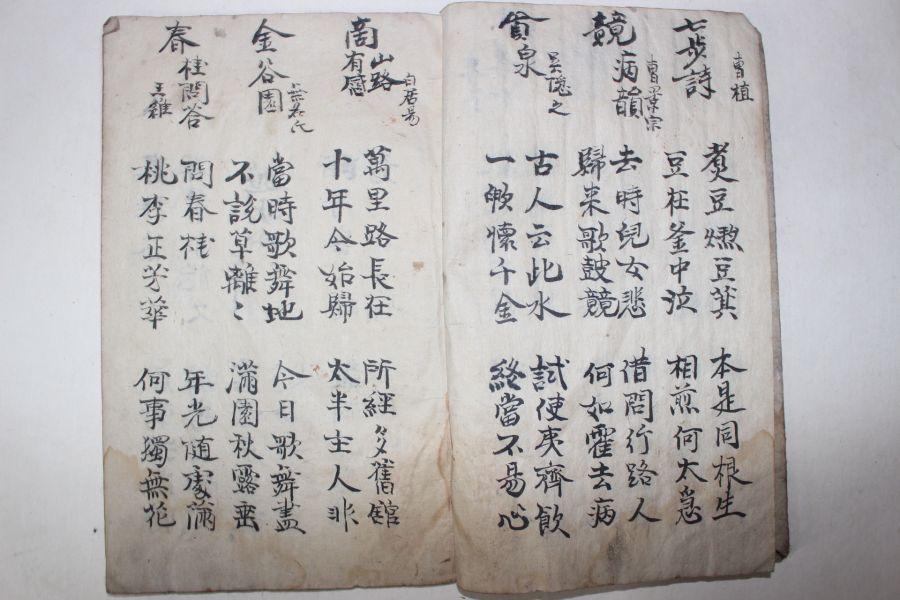 七步詩
曹植
煮豆燃豆萁
豆在釜中泣
本是同根生
相煎何太急
競病韻
曹景宗
去時兒女悲
歸來歌鼓競
借問行路人
何如霍去病
貪泉
吳隱之
古人云此水
一歃懷千金
試使夷齊飲
終當不易心
商山路有感
白居易
萬里路長在
十年今始歸
所經多舊館
太半主人非
金谷園
無名氏
當時歌舞地
不說草離〻
今日歌舞盡
滿園秋露垂
春桂問答
王維
問春桂
桃李正芳華
年光隨處滿
何事獨無花